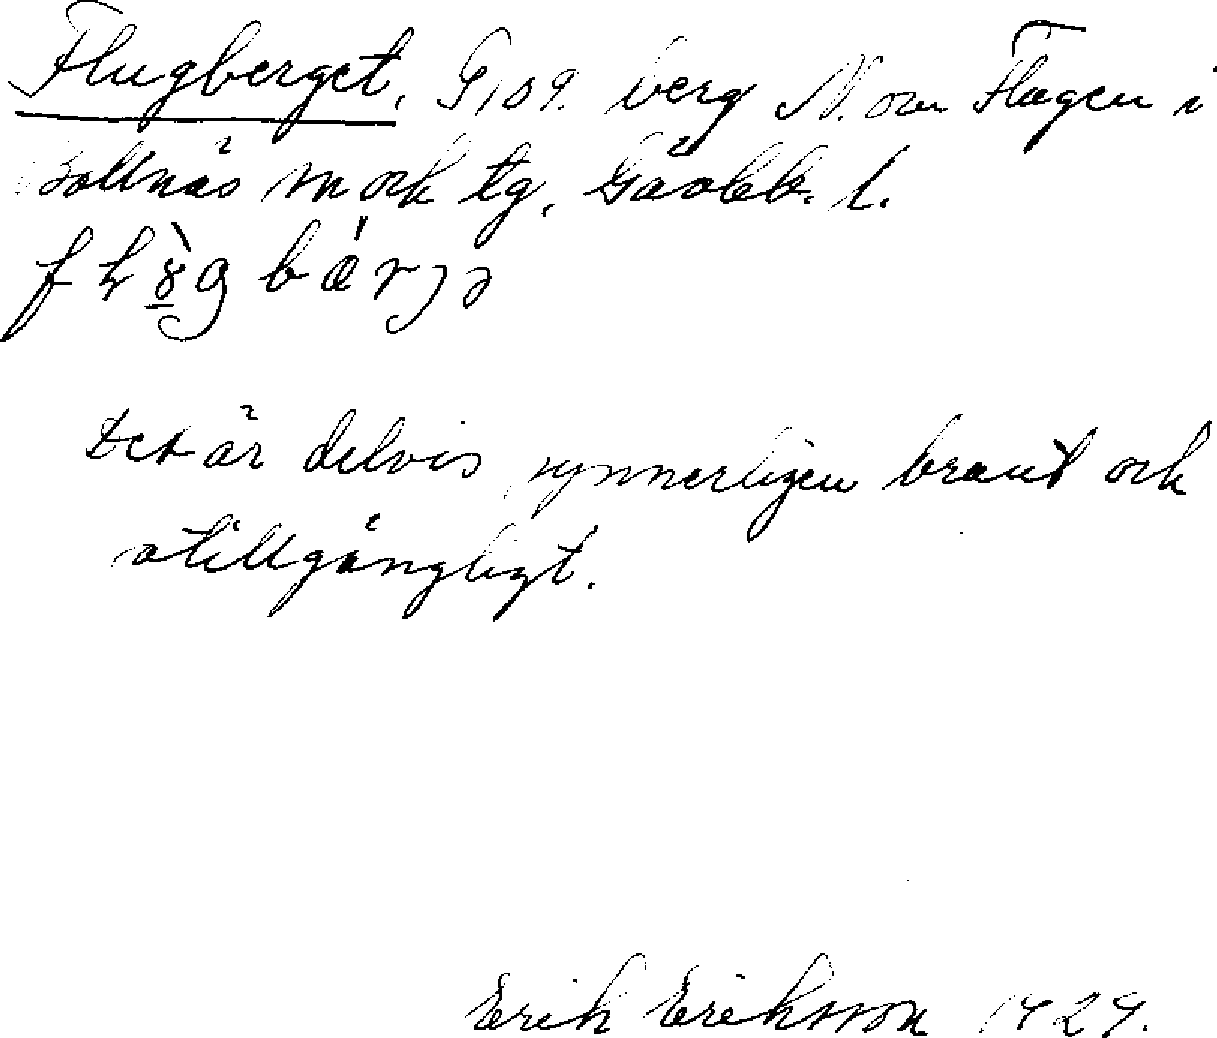 Flugberget, G 109. berg N. om Flagen i
Bollnäs sn och tg, Gävlebs. l.
det är delvis synnerligen brant och
otillgängligt.
Erik Eriksson 1929.